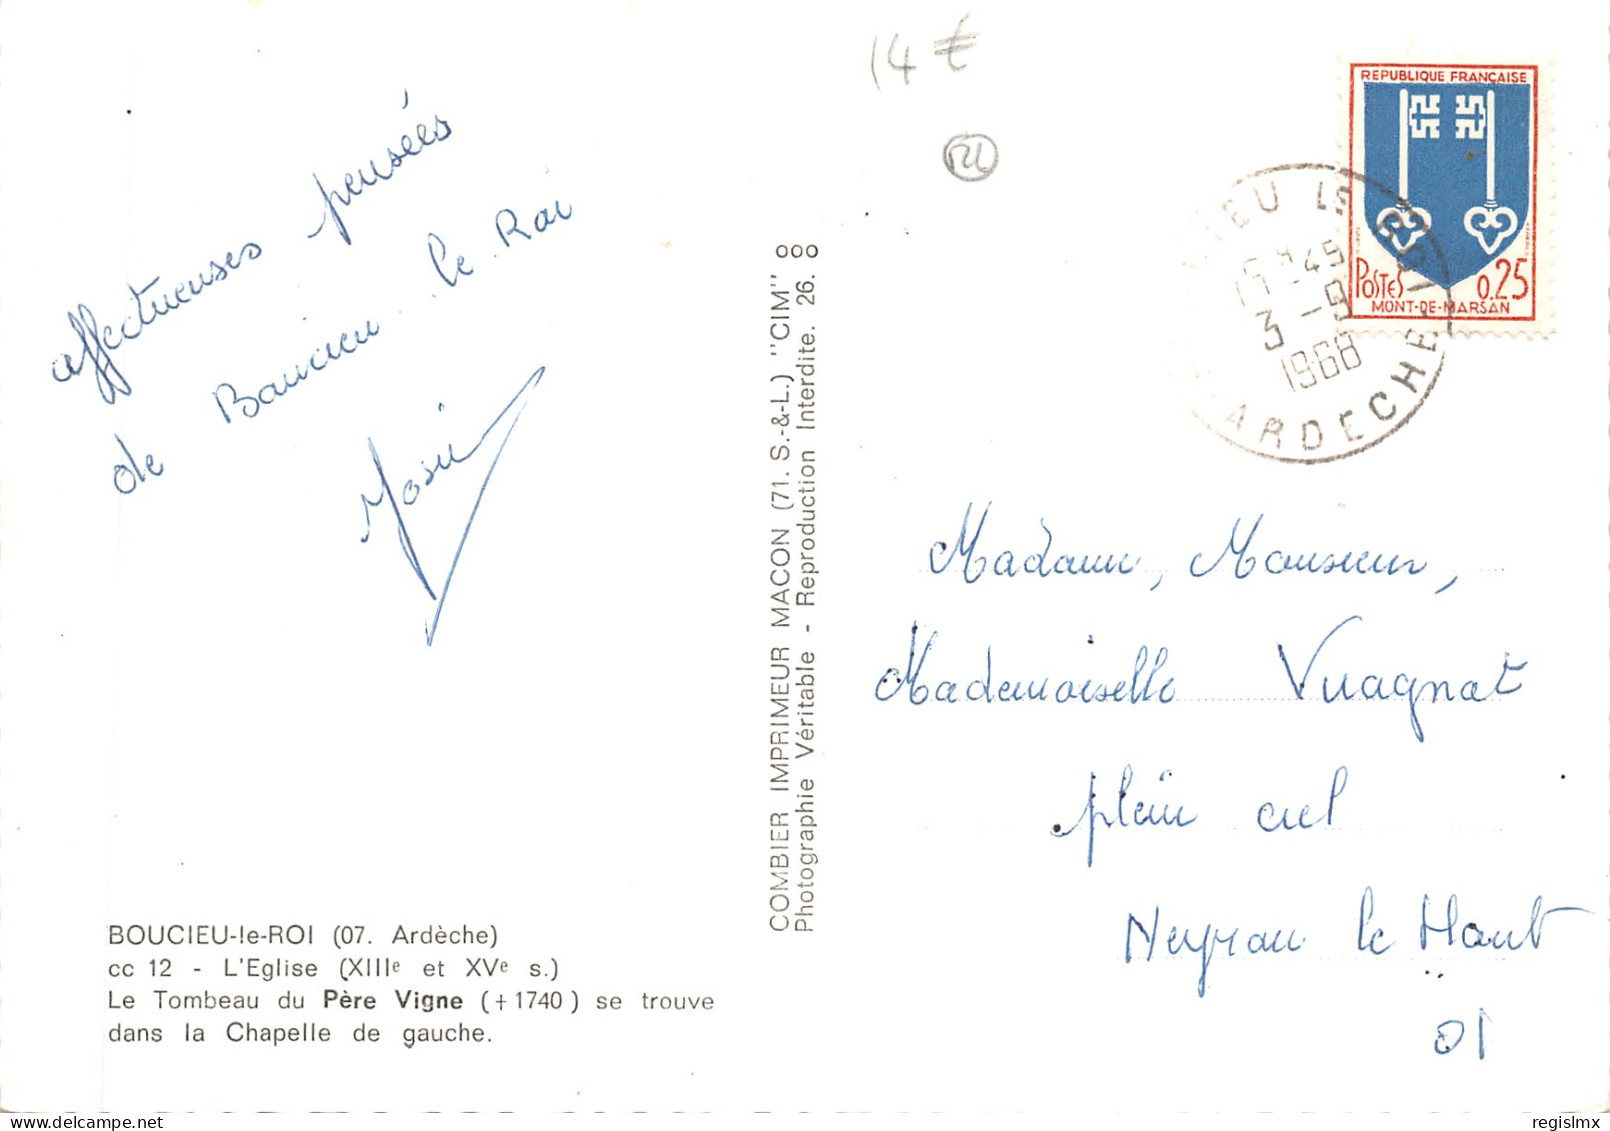 14 €
affectueuses pensées
de Boucieu le Roi
Josu
BOUCIEU-le-ROI (07. Ardèche)
cc 12 - L'Eglise (XIIIe et XVe s.)
Le Tombeau du Père Vigne (✝1740) se trouve
dans la Chapelle de gauche.
COMBIER IMPRIMEUR MACON (71. S.-&-L.) "CIM"
Photographie Véritable - Reproduction Interdite. 26.
REPUBLIQUE FRANÇAISE
POSTES 0,25
MONT-DE-MARSAN
IEU LE ROI
-45
3 -9
1968
ARDECHE
Madame, Monsieur,
Mademoiselle Vuagnat
plein ciel
Neyran le Haut
01
regislmx